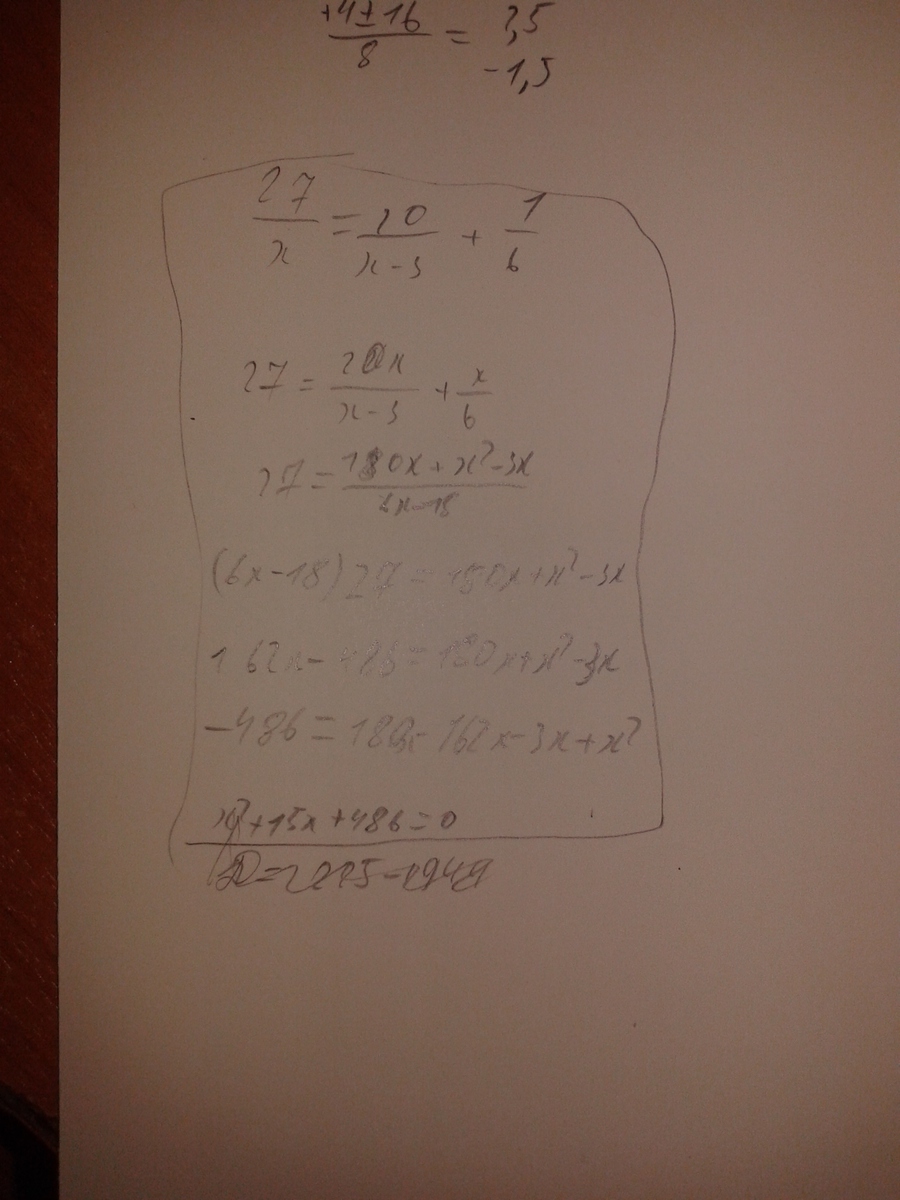 +4±16/8 = 2,5
-1,5
27/x = 20/x-3 + 1/6
27 = 20x/x-3 + x/6
27 = 180x+x²-3x/6x-18
(6x-18)27 = 180x+x²-3x
162x-486=180x+x²-3x
-486=180x-162x-3x+x²
x²+15x+486=0